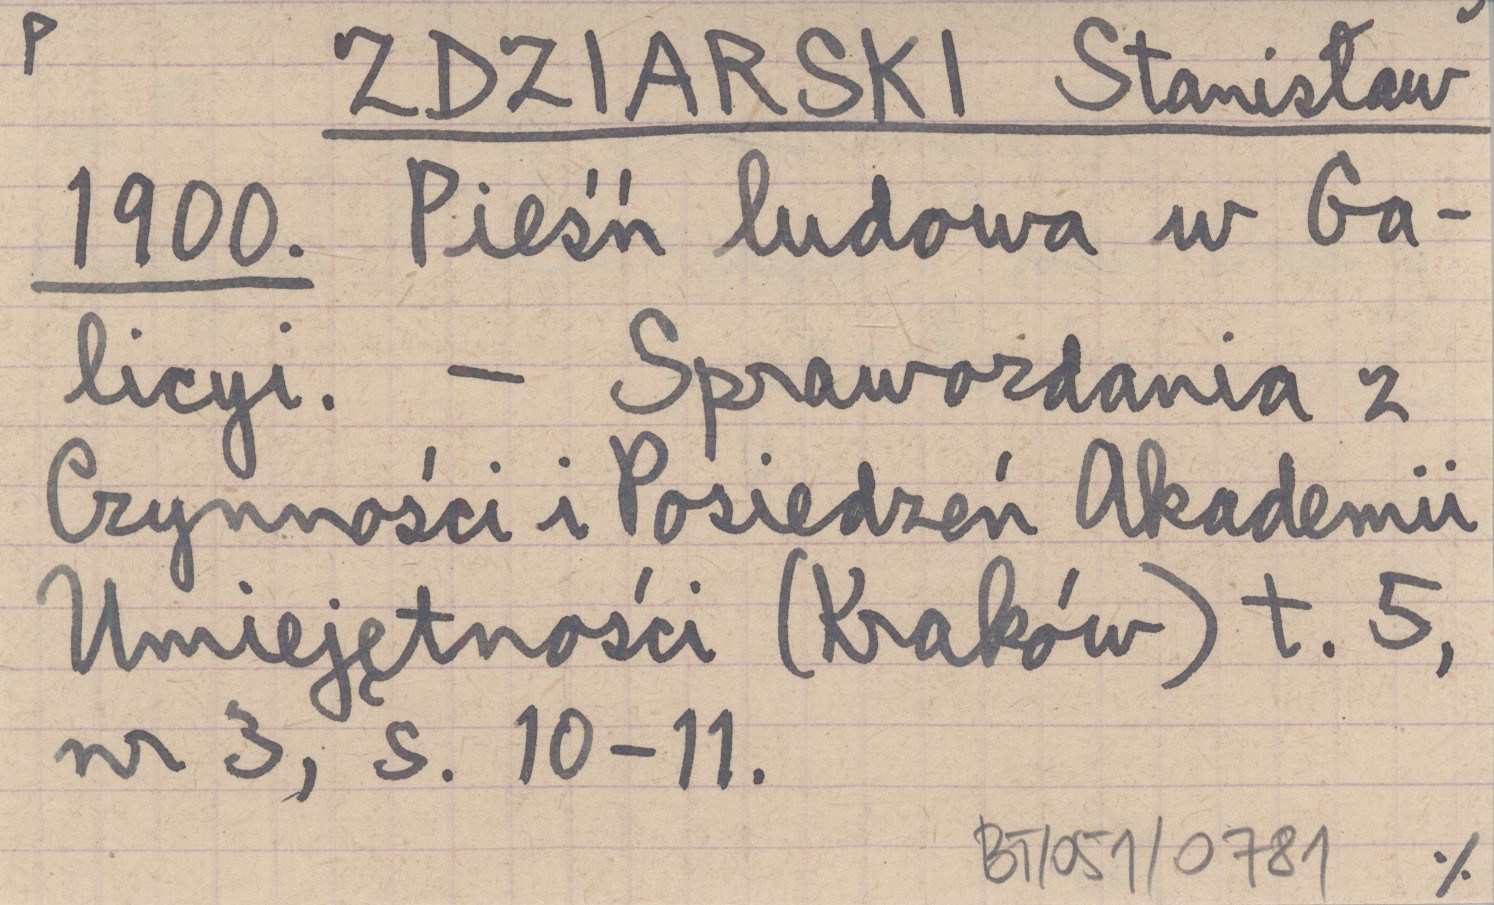 P ZDZIARSKI Stanisław
1900. Pieśń ludowa w Ga-
licyi. – Sprawozdania z
Czynności i Posiedzeń Akademii
Umiejętności (Kraków) t. 5,
nr 3, s. 10–11.
BT/051/0781 ./.